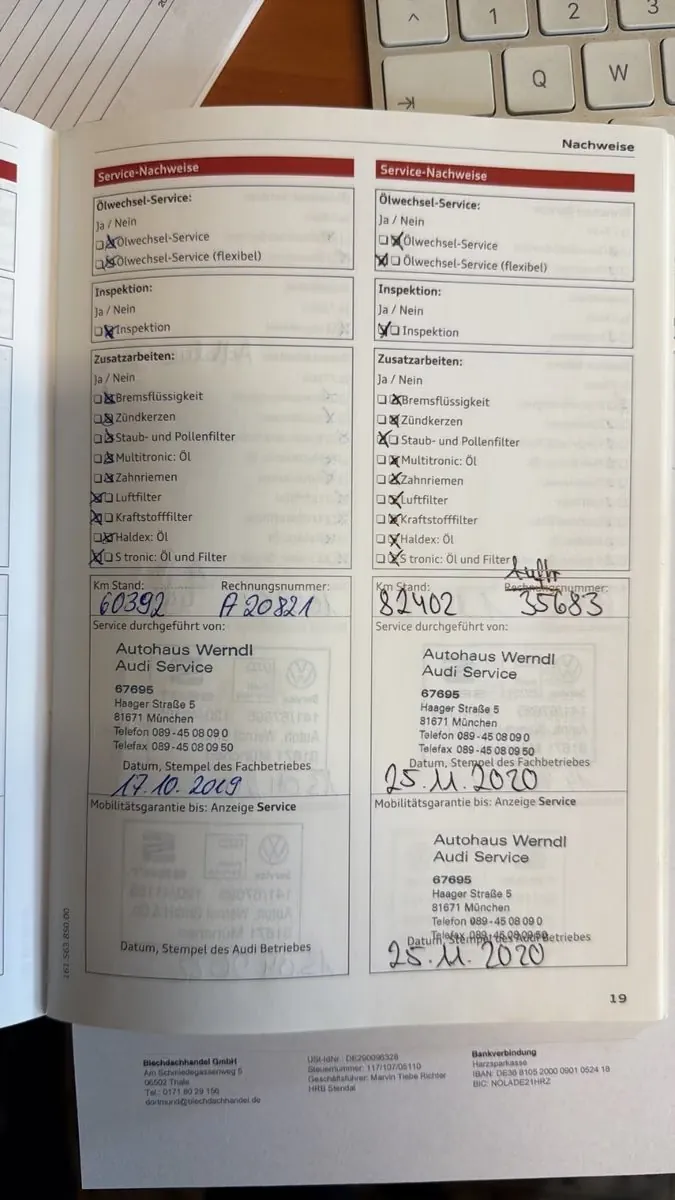 ^
1
2
3
Q
W
Nachweise
Service-Nachweise
Ölwechsel-Service:
Ja / Nein
Ölwechsel-Service
Ölwechsel-Service (flexibel)
Inspektion:
Ja / Nein
Inspektion
Zusatzarbeiten:
Ja / Nein
Bremsflüssigkeit
Zündkerzen
Staub- und Pollenfilter
Multitronic: Öl
Zahnriemen
Luftfilter
Kraftstofffilter
Haldex: Öl
S tronic: Öl und Filter
Km Stand: Rechnungsnummer:
60392 A 20821
Service durchgeführt von:
Autohaus Werndl
Audi Service
67695
Haager Straße 5
81671 München
Telefon 089-45 08 09 0
Telefax 089-45 08 09 50
Datum, Stempel des Fachbetriebes
17.10.2019
Mobilitätsgarantie bis: Anzeige Service
Datum, Stempel des Audi Betriebes
Service-Nachweise
Ölwechsel-Service:
Ja / Nein
Ölwechsel-Service
Ölwechsel-Service (flexibel)
Inspektion:
Ja / Nein
Inspektion
Zusatzarbeiten:
Ja / Nein
Bremsflüssigkeit
Zündkerzen
Staub- und Pollenfilter
Multitronic: Öl
Zahnriemen
Luftfilter
Kraftstofffilter
Haldex: Öl
S tronic: Öl und Filter
Km Stand: Rechnungsnummer:
82402 35683
Service durchgeführt von:
Autohaus Werndl
Audi Service
67695
Haager Straße 5
81671 München
Telefon 089-45 08 09 0
Telefax 089-45 08 09 50
Datum, Stempel des Fachbetriebes
25.11.2020
Mobilitätsgarantie bis: Anzeige Service
Autohaus Werndl
Audi Service
67695
Haager Straße 5
81671 München
Telefon 089-45 08 09 0
Telefax 089-45 08 09 50
Datum, Stempel des Audi Betriebes
25.11.2020
161.563.850.00
19
Blechdachhandel GmbH
Am Schmiedegassenweg 5
06502 Thale
Tel.: 0171 80 29 156
dortmund@blechdachhandel.de
USt-IdNr.: DE290096328
Steuernummer: 117/107/05110
Geschäftsführer: Marvin Tiebe Richter
HRB Stendal
Bankverbindung
Harzsparkasse
IBAN: DE36 8105 2000 0901 0524 18
BIC: NOLADE21HRZ